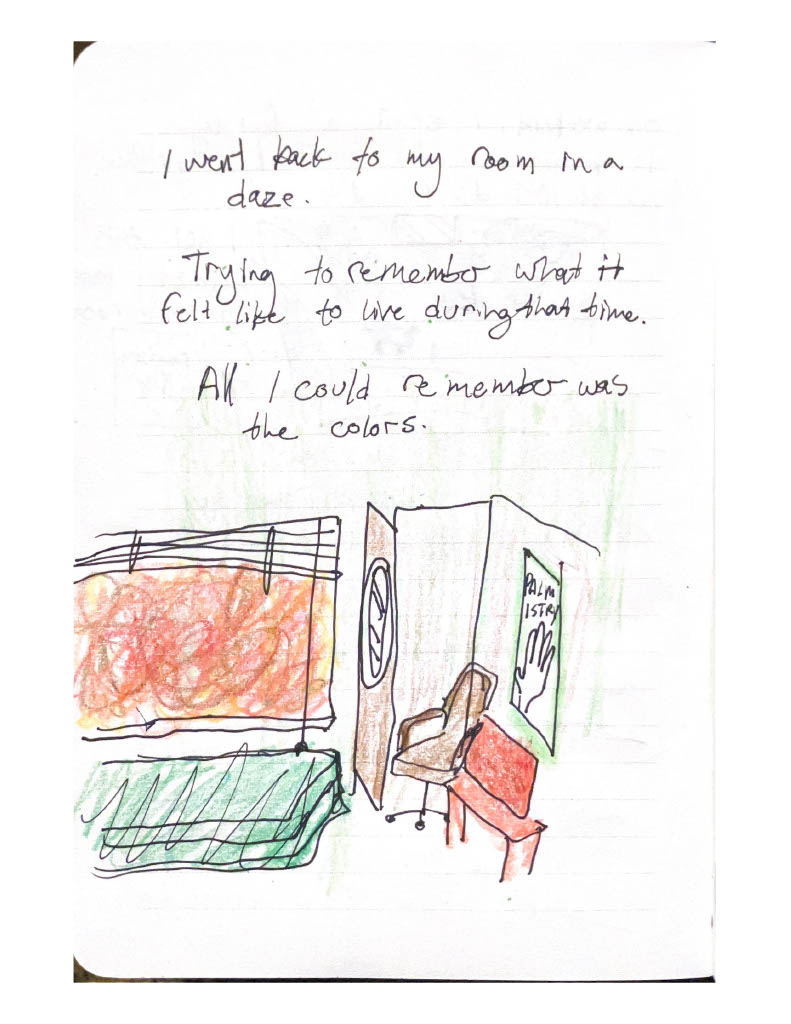 I went back to my room in a
daze.
Trying to remember what it
felt like to live during that time.
All I could remember was
the colors.
PALM
ISTRY